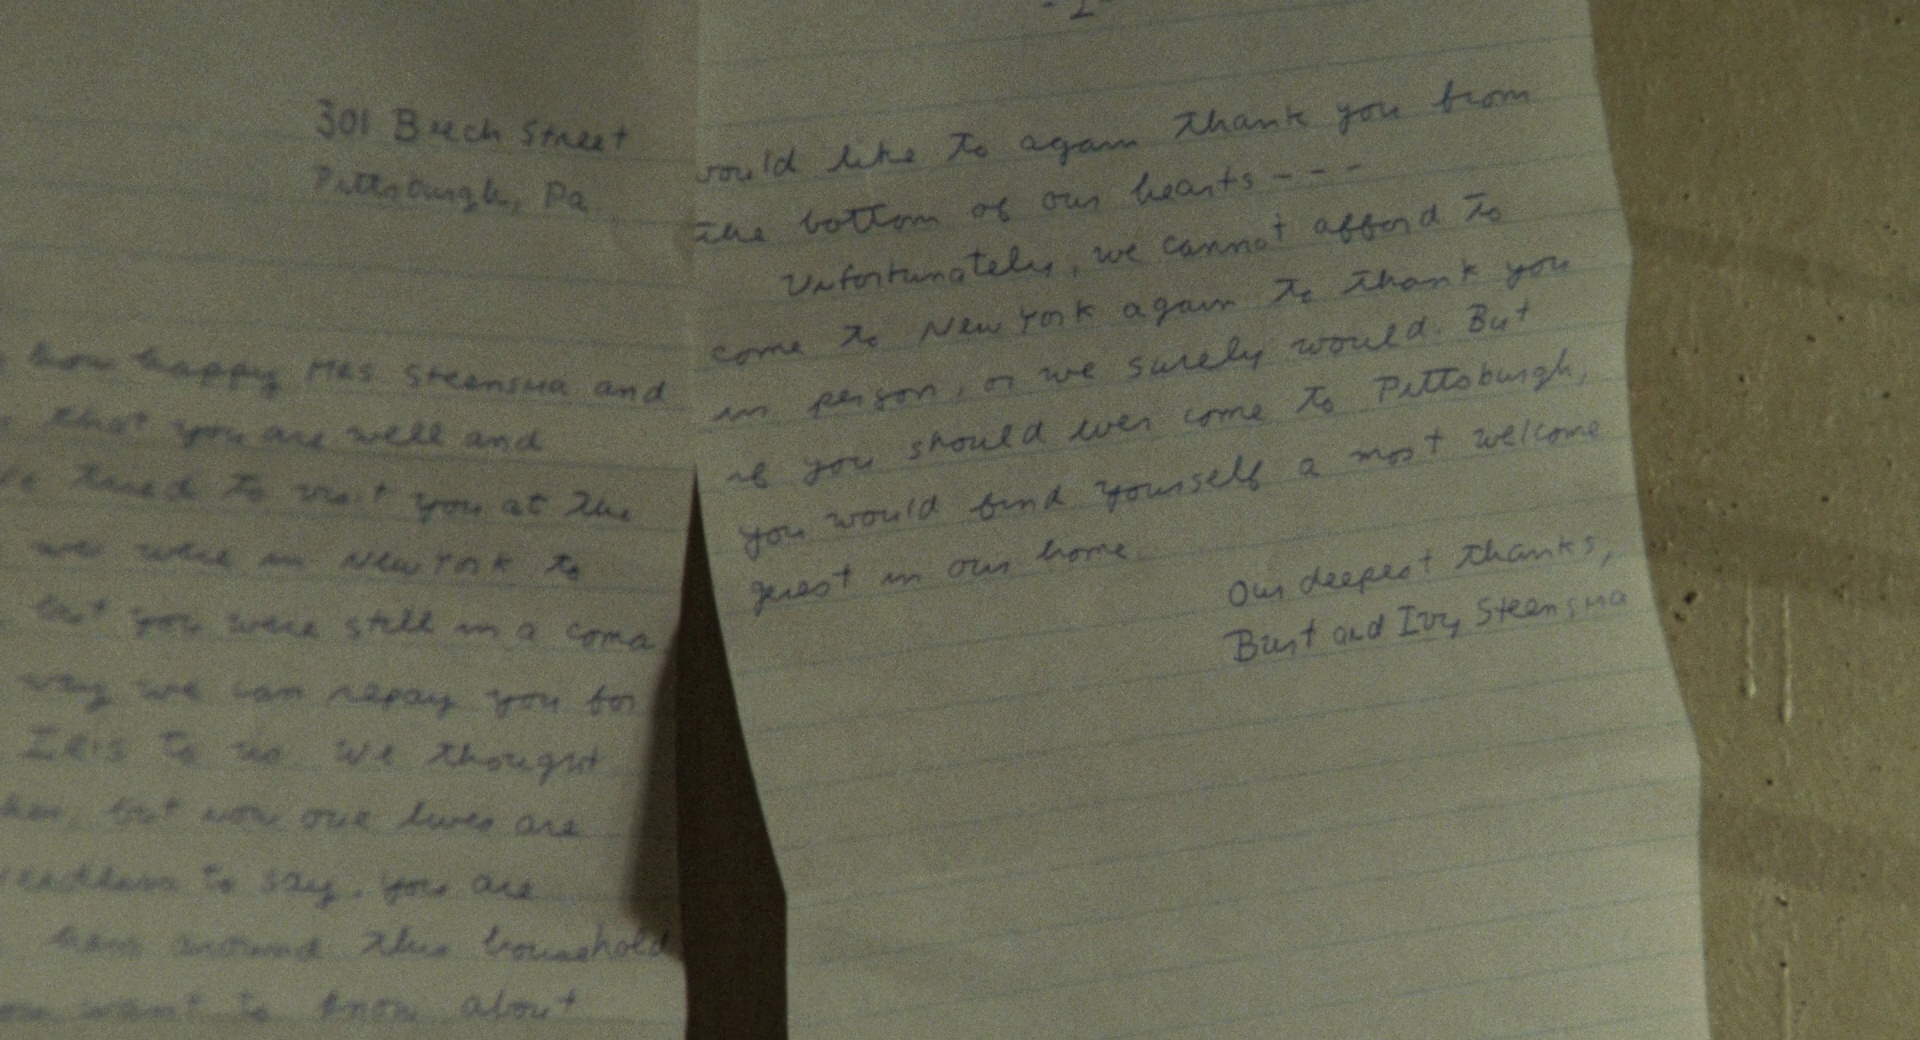 301 Beech Street
Pittsburgh, Pa
how happy MRS Steensma and
that you are well and
tried to visit you at the
we were in New York to
but you were still in a coma.
way we can repay you for
Iris to us. We thought
her, but now our lives are
needless to say, you are
hero around this household
want to know about
-2-
would like to again thank you from
the bottom of our hearts - - -
Unfortunately, we cannot afford to
come to New York again to thank you
in person, or we surely would. But
if you should ever come to Pittsburgh,
you would find yourself a most welcome
guest in our home
Our deepest thanks,
Burt and Ivy Steensma